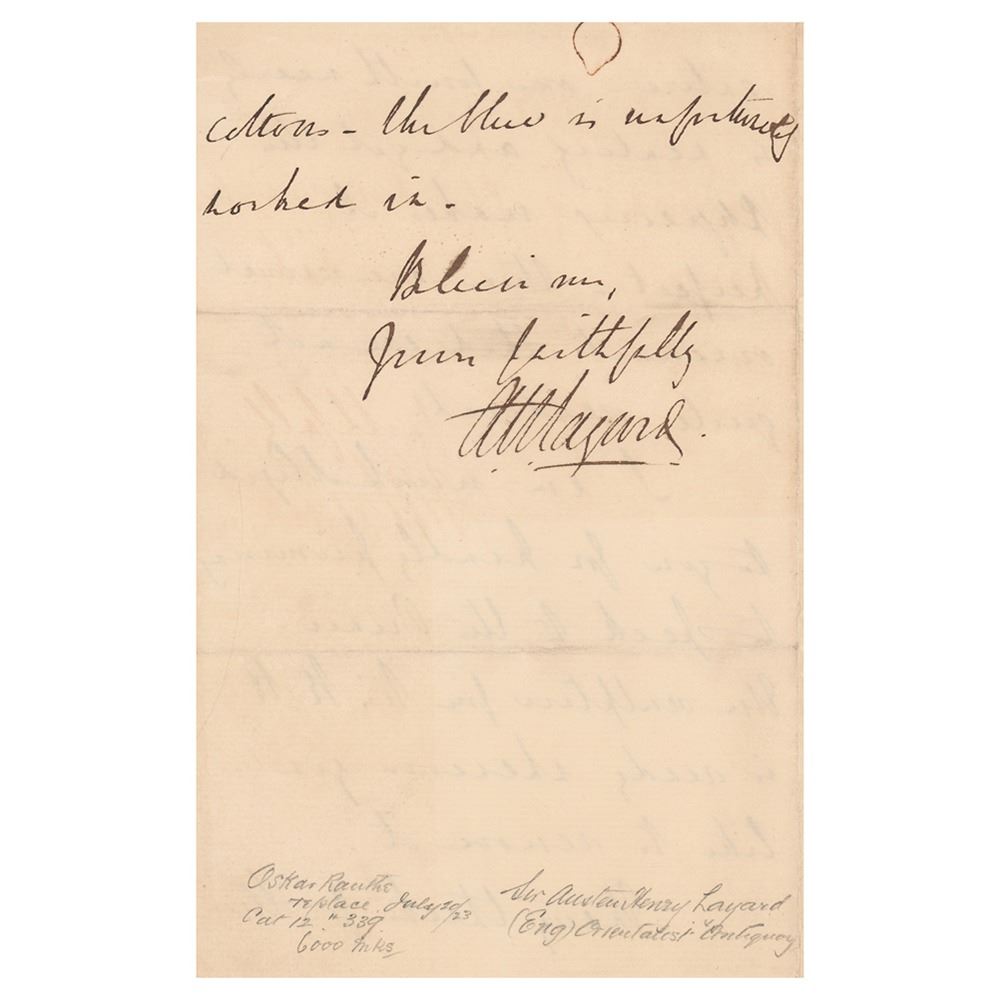 cottons – the blue is unfortunately
worked in.
Believe me,
Yours faithfully
AHLayard.
Oskar Rauthe
to place July 20/23
Cat 12 " 339
6000 Mks
Sir Austen Henry Layard
(Eng) Orientalist & Antiquary